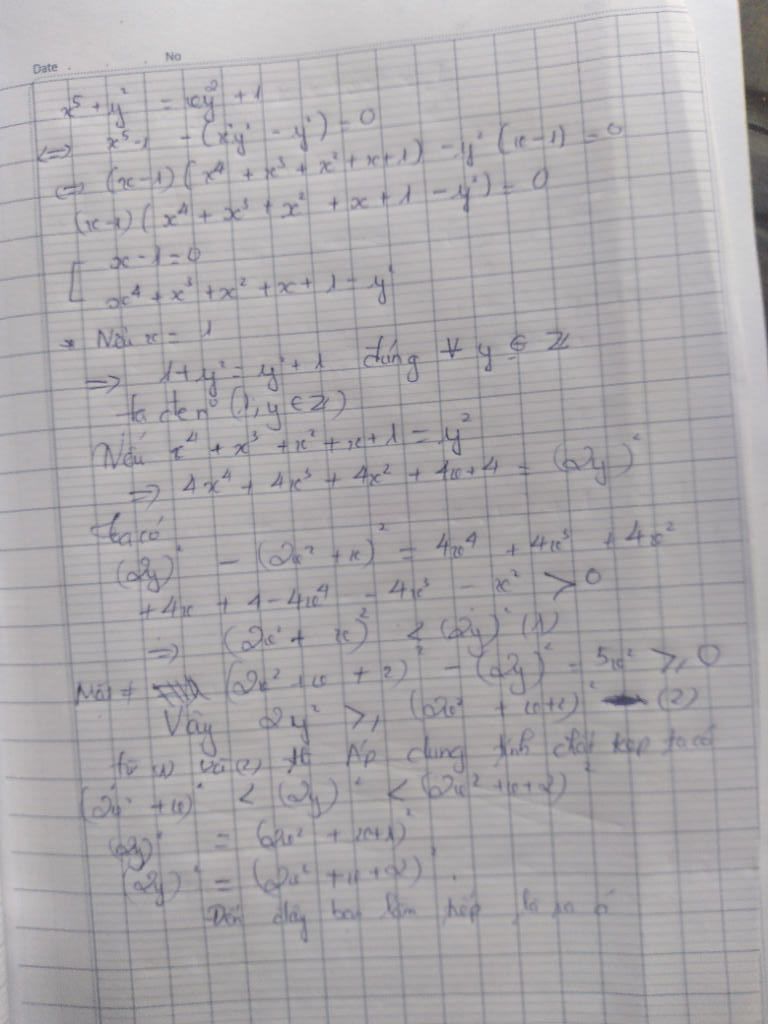 Date No
x⁵ + y² = xy² + 1
⇔ x⁵-1 - (xy² - y²) = 0
⇔ (x-1)(x⁴ + x³ + x² + x+1) - y² (x-1) = 0
(x-1)(x⁴ + x³ + x² + x + 1 - y²) = 0
[ x - 1 = 0
x⁴ + x³ + x² + x + 1 = y²
* Nếu x = 1
⇒ 1+y² = y²+1 đúng ∀ y ∈ Z
(1, y ∈ Z)
Nếu x⁴ + x³ + x² + x + 1 = y²
⇒ 4x⁴ + 4x³ + 4x² + 4x+4 = (2y)²
Ta có
(2y)² - (2x² + x)² = 4x⁴ + 4x³ + 4x²
+4x + 4-4x⁴ - 4x³ - x² > 0
⇒ (2x² + x)² < (2y)² (1)
Mặt ≠ (2x² + x + 2)² - (2y)² = 5x² ≥ 0
Vậy 2y² ≥ (2x² + x+2)² (2)
từ (1) và (2) Áp dụng tính chất kẹp ta có
(2x² + x)² < (2y)² < (2x² + x + 2)²
(2y)² = (2x² + x+1)²
(2y)² = (2x² + x + 2)²
Đến đây bạn làm tiếp là ra